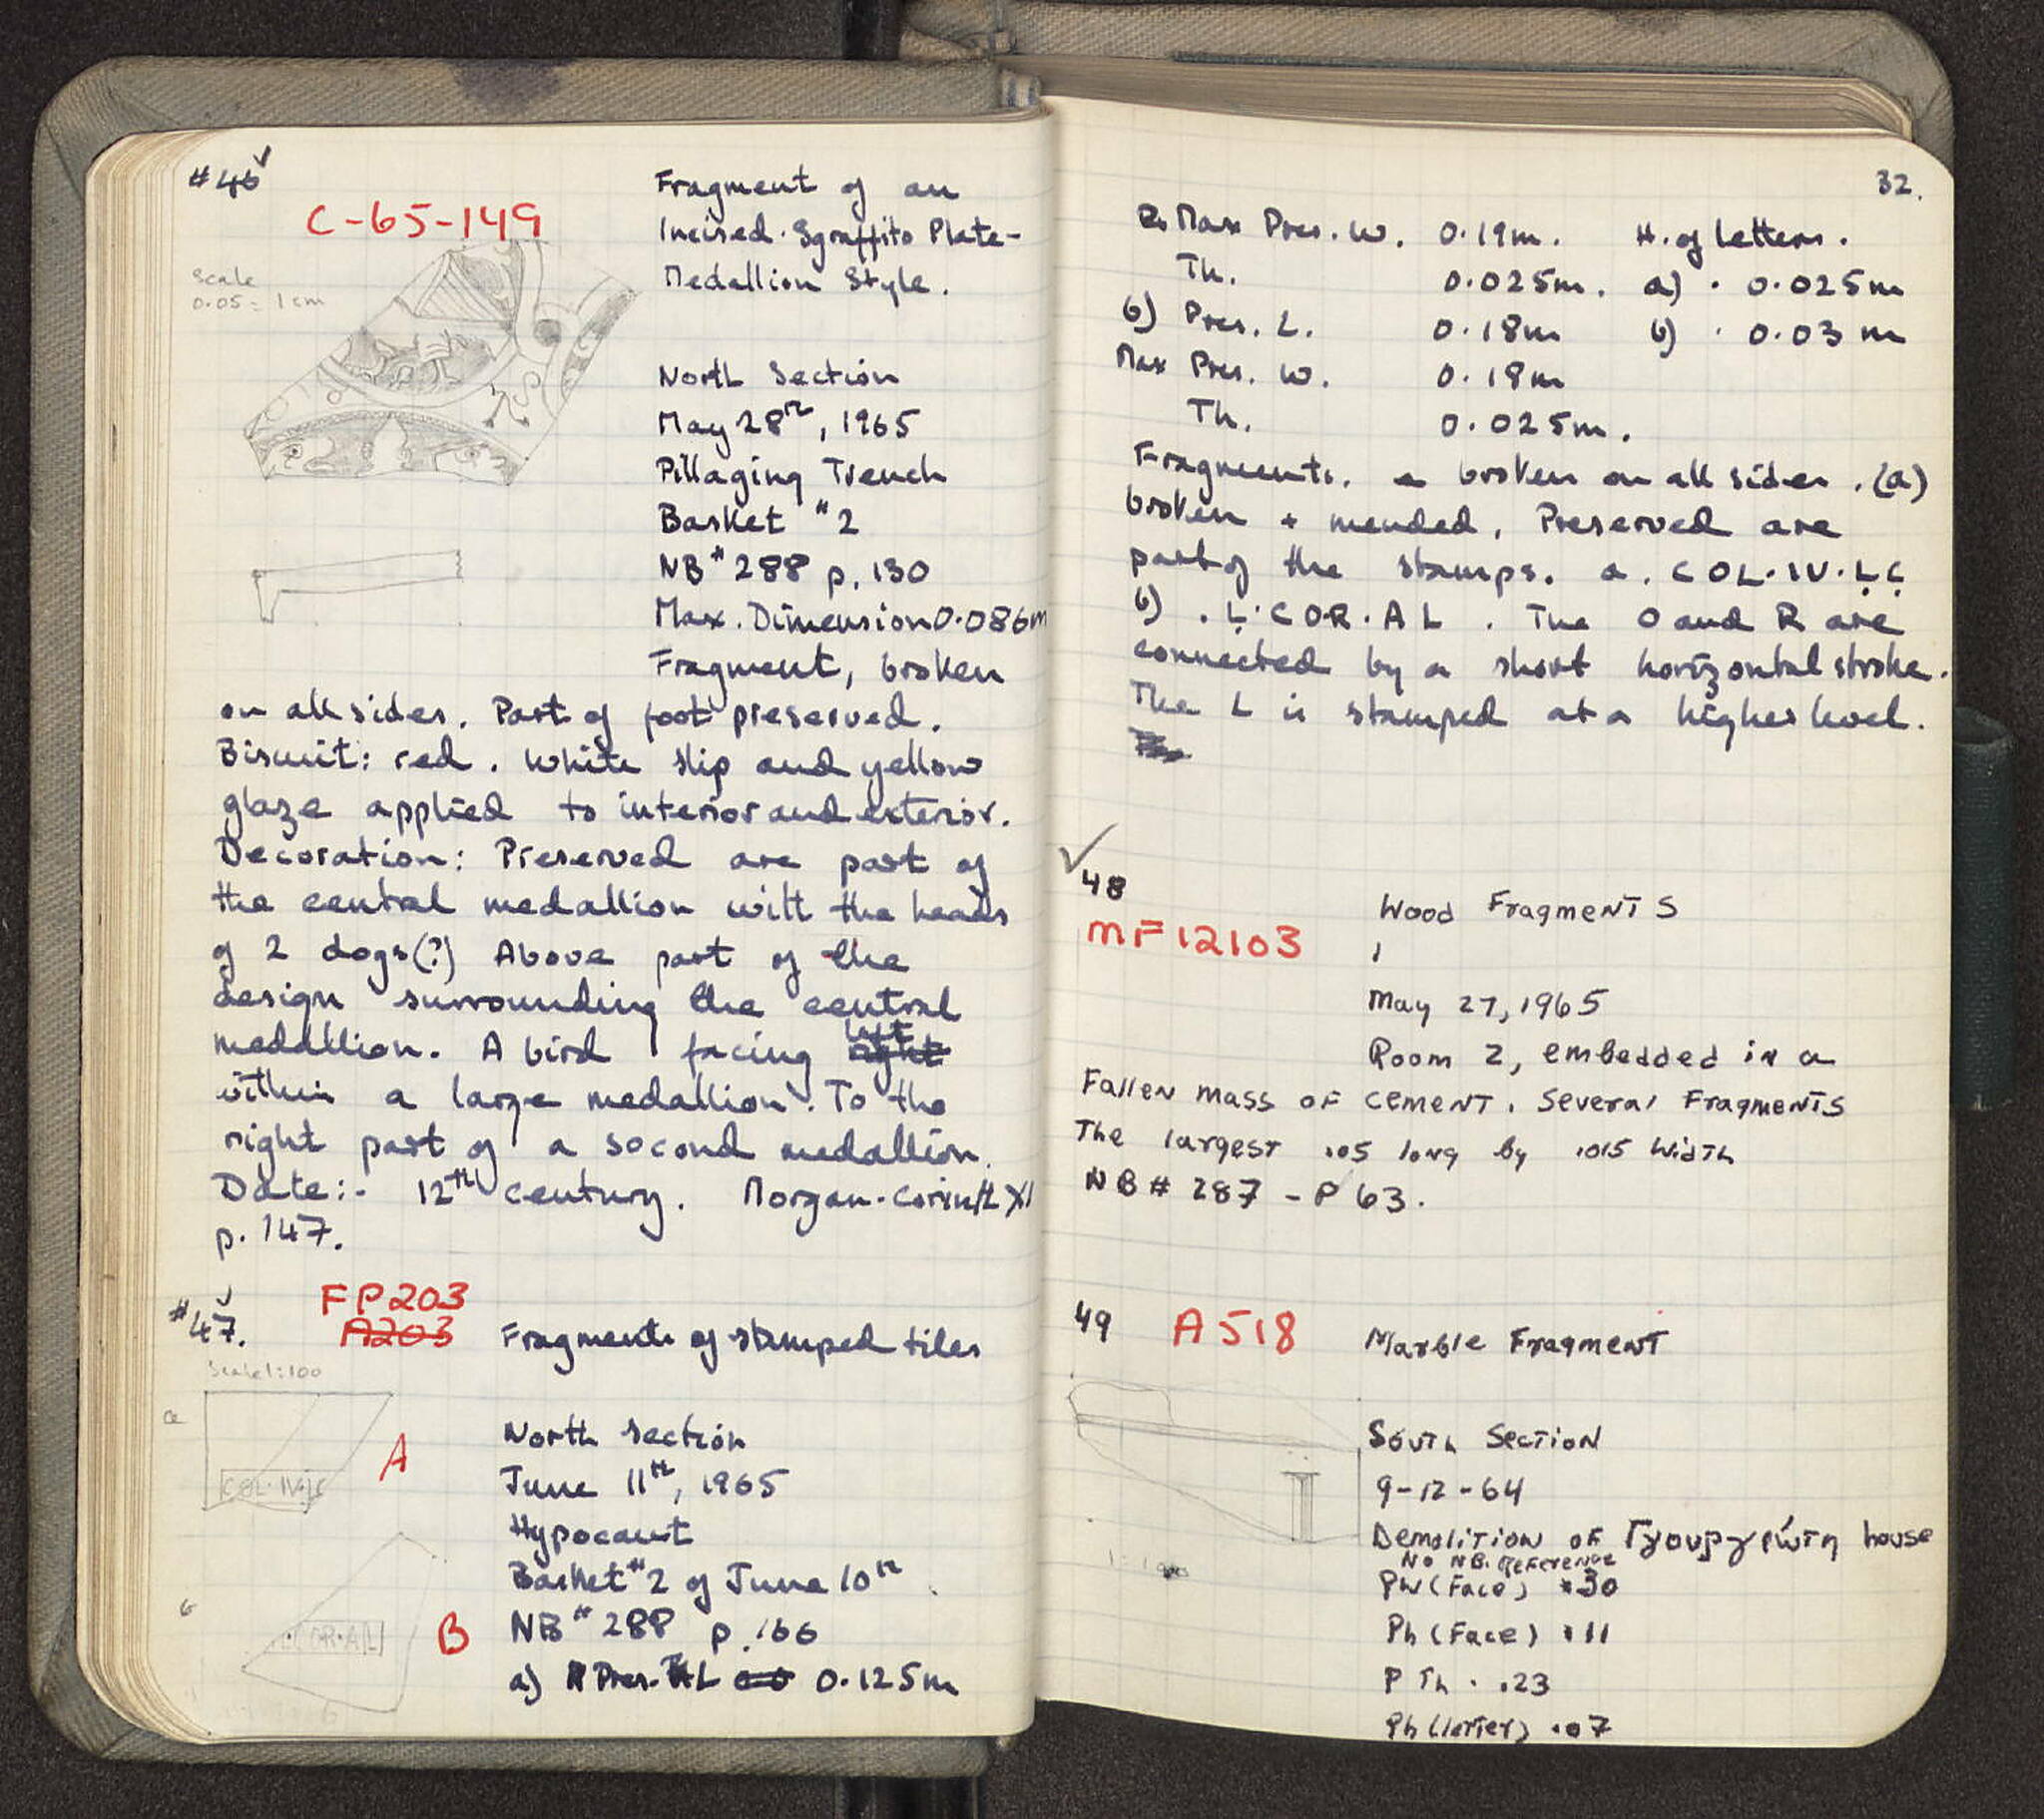 #46
C-65-149
Scale
0.05 = 1cm
Fragment of an
Incised-Sgraffito Plate-
Medallion Style.
North Section
May 28th, 1965
Pillaging Trench
Basket #2
NB# 288 p. 130
Max. Dimension 0.086m
Fragment, broken
on all sides. Part of foot preserved.
Biscuit: red. White slip and yellow
glaze applied to interior and exterior.
Decoration: Preserved are part of
the central medallion with the heads
of 2 dogs(?) Above part of the
design surrounding the central
medallion. A bird facing left
within a large medallion. To the
right part of a second medallion.
Date:- 12th century. Morgan-Corinth XI
p. 147.
#47.
FP203
A203
Fragments of stamped tiles
Scale 1:100
a
COL·IV·LC
A
North Section
June 11th, 1965
Hypocaust
Basket #2 of June 10th
b
COR·AL
B
NB# 288 p. 166
a) Pres. L 0.125m
32.
Max Pres. W. 0.19m. H. of Letters.
Th. 0.025m. a) · 0.025m
b) Pres. L. 0.18m b) · 0.03m
Max Pres. W. 0.18m
Th. 0.025m.
Fragments. broken on all sides. (a)
broken + mended. Preserved are
part of the stamps. a. COL·IV·ḶC̣
b) . Ḷ·COR·AL. The O and R are
connected by a short horizontal stroke.
The L is stamped at a higher level.
48
MF12103
Wood Fragments
May 27, 1965
Room 2, embedded in a
Fallen mass of cement. Several Fragments
The largest .05 long by .015 Width
NB# 287 - P 63.
49
A518
Marble Fragment
South Section
9-12-64
Demolition of Γγουργιώτη house
No NB. Reference
PW (Face) .30
Ph (Face) .11
P Th. .23
Ph (letter) .07